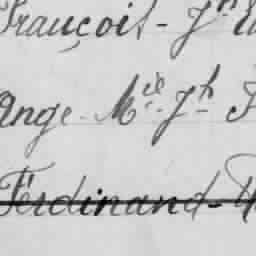 François - Jh
Ange - Mie - Jh
Ferdinand -